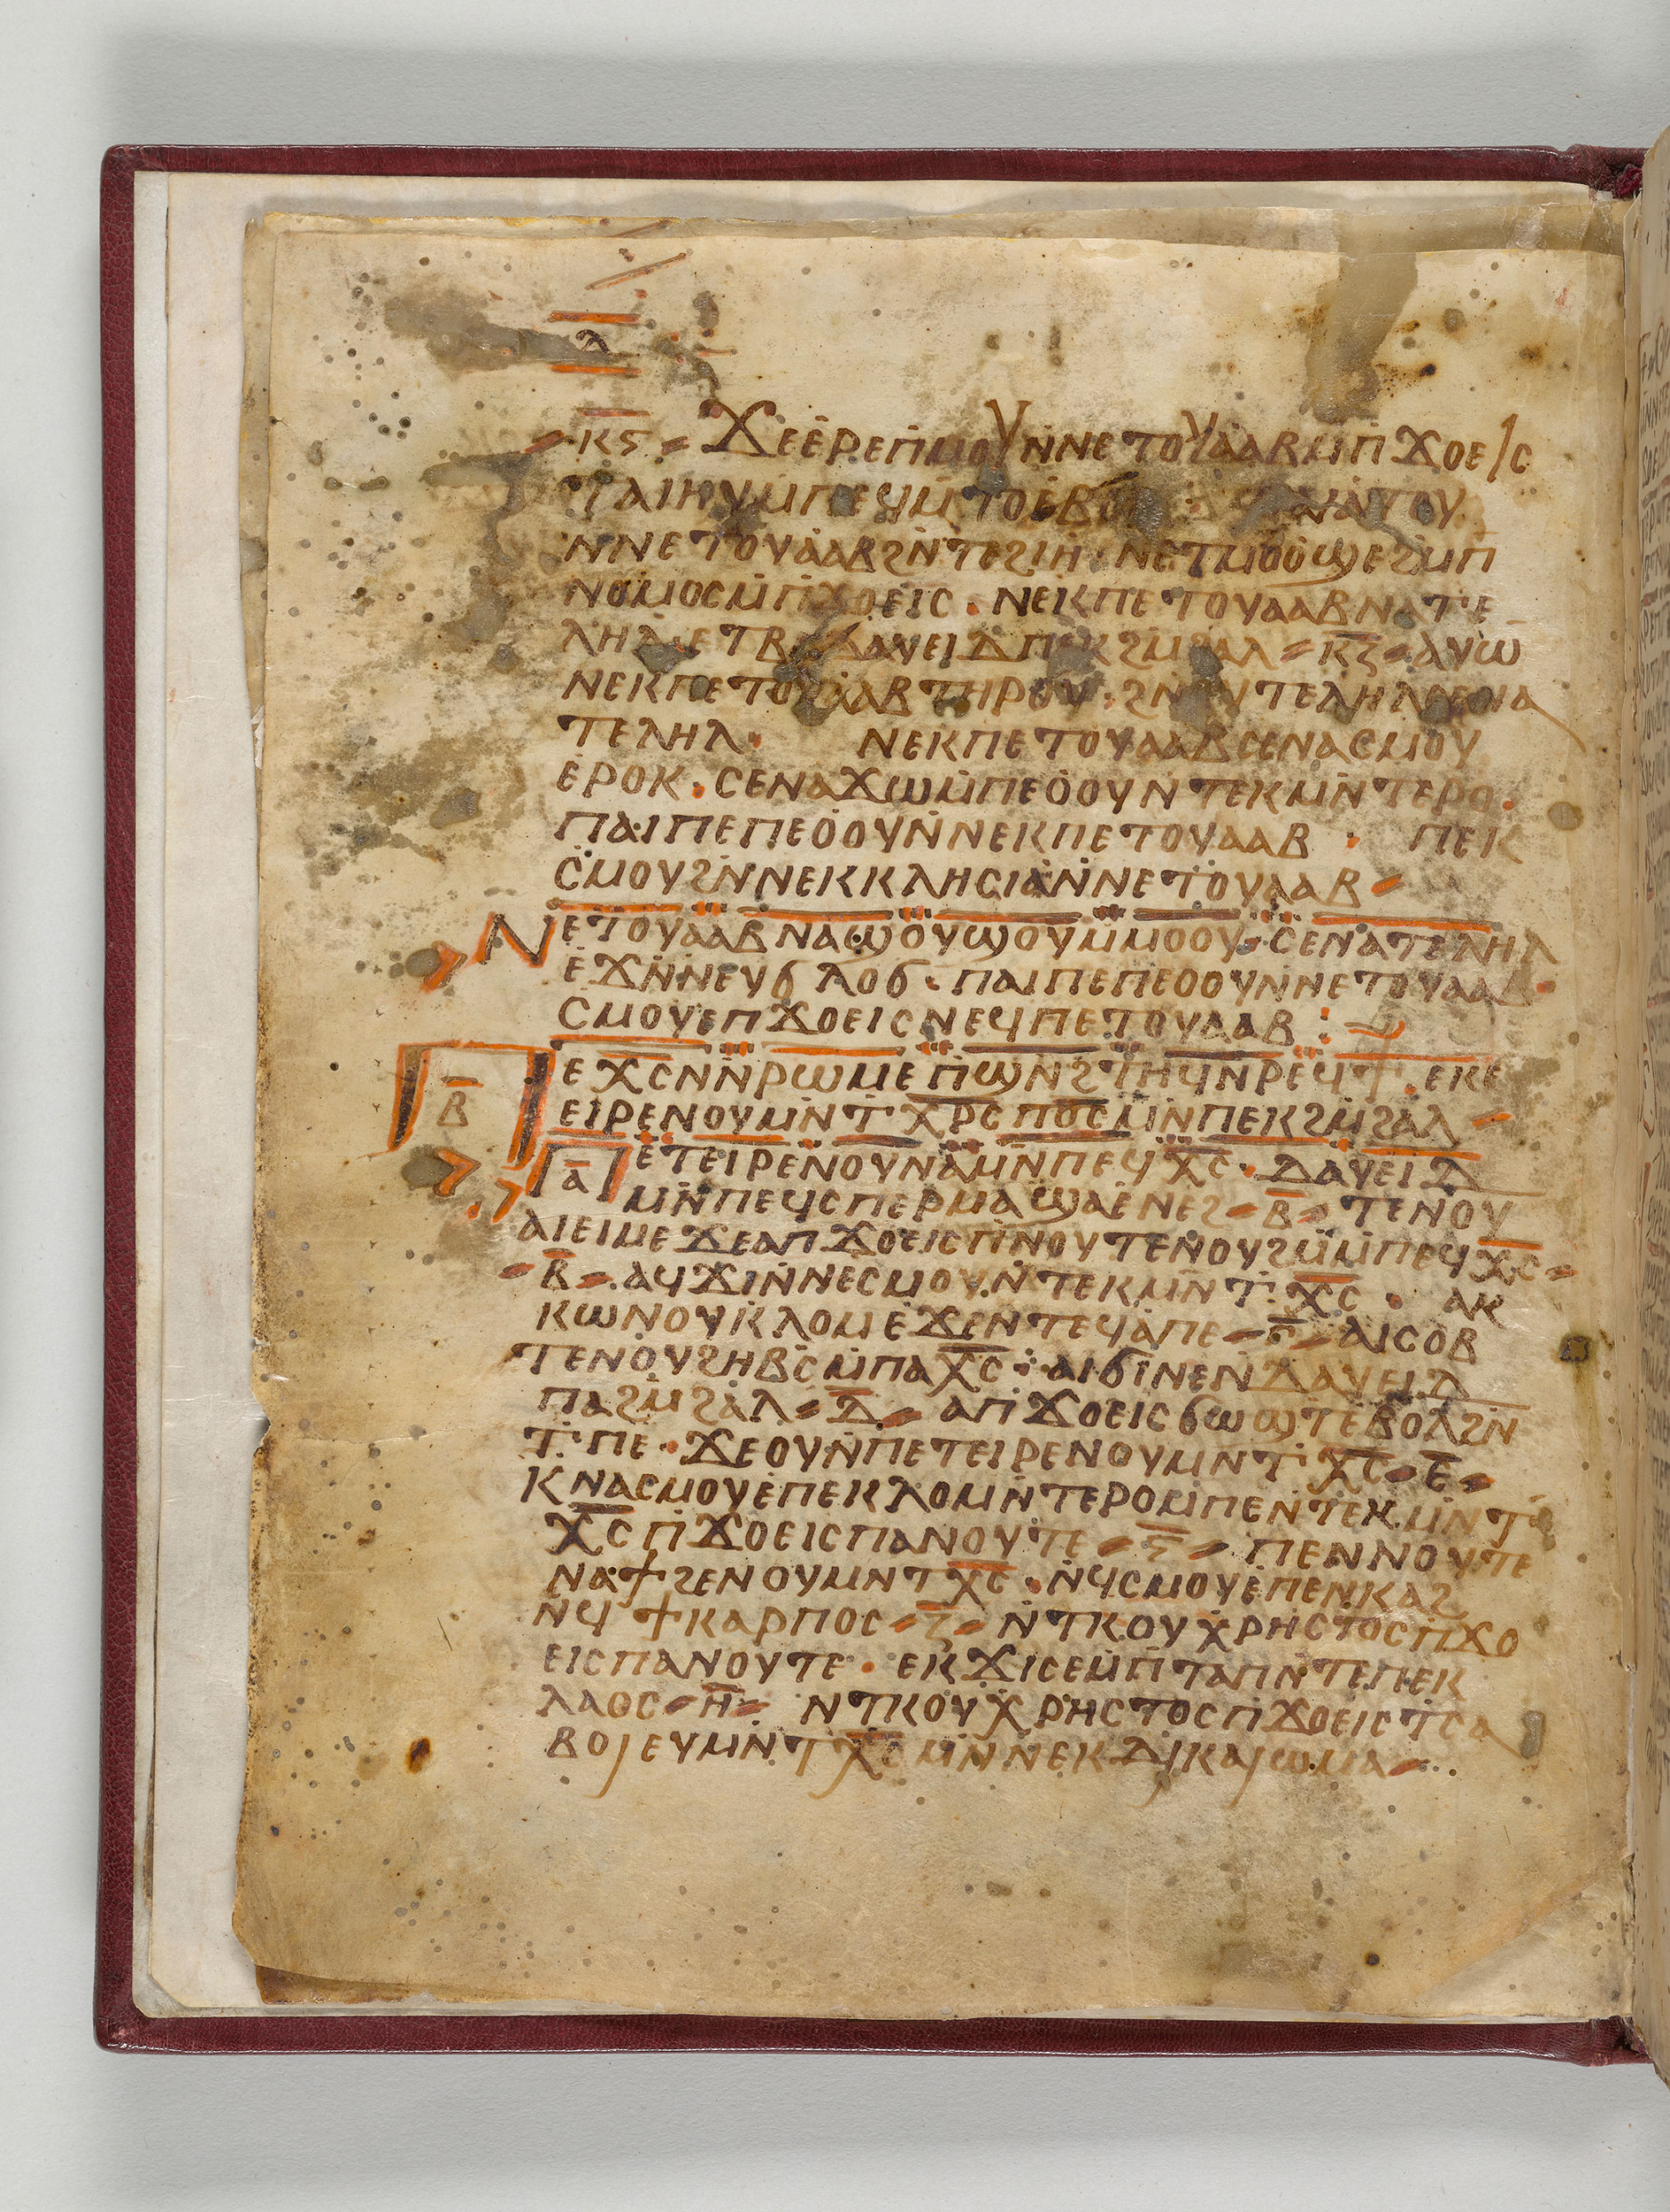 ⲗ
ⲕⲋ ϫⲉⲉⲣⲉⲡⲙⲟⲩⲛⲛⲉⲧⲟⲩⲁⲁⲃⲙⲡϫⲟⲉⲓⲥ
ⲧⲁⲓⲏⲩⲙⲡⲉϥⲙⲧⲟⲉⲃⲟⲗ ⲛⲁⲓⲁⲧⲟⲩ
ⲛⲛⲉⲧⲟⲩⲁⲁⲃϩⲛⲧⲉϩⲓⲏ · ⲛⲉⲧⲙⲟⲟϣⲉϩⲙⲡ
ⲛⲟⲙⲟⲥⲙⲡϫⲟⲉⲓⲥ · ⲛⲉⲕⲡⲉⲧⲟⲩⲁⲁⲃⲛⲁⲧⲉ
ⲗⲏⲗⲉⲧⲃⲉⲇⲁⲩⲉⲓⲇⲡⲉⲕϩⲙϩⲁⲗ ⲕⲍ ⲁⲩⲱ
ⲛⲉⲕⲡⲉⲧⲟⲩⲁⲁⲃⲧⲏⲣⲟⲩ · ϩⲛⲟⲩⲧⲉⲗⲏⲗⲥⲉⲛⲁ
ⲧⲉⲗⲏⲗ · ⲛⲉⲕⲡⲉⲧⲟⲩⲁⲁⲃⲥⲉⲛⲁⲥⲙⲟⲩ
ⲉⲣⲟⲕ · ⲥⲉⲛⲁϫⲱⲙⲡⲉⲟⲟⲩⲛⲧⲉⲕⲙⲛⲧⲉⲣⲟ ·
ⲡⲁⲓⲡⲉⲡⲉⲟⲟⲩⲛⲛⲉⲕⲡⲉⲧⲟⲩⲁⲁⲃ · ⲡⲉⲕ
ⲥⲙⲟⲩϩⲛⲛⲉⲕⲕⲗⲏⲥⲓⲁⲛⲛⲉⲧⲟⲩⲁⲁⲃ
ⲛⲉⲧⲟⲩⲁⲁⲃⲛⲁϣⲟⲩϣⲟⲩⲙⲙⲟⲟⲩ · ⲥⲉⲛⲁⲧⲉⲗⲏⲗ
ⲉϫⲛⲛⲉⲩϭⲗⲟϭ · ⲡⲁⲓⲡⲉⲡⲉⲟⲟⲩⲛⲛⲉⲧⲟⲩⲁⲁⲃ
ⲥⲙⲟⲩⲉⲡϫⲟⲉⲓⲥⲛⲉϥⲡⲉⲧⲟⲩⲁⲁⲃ :
ⲃ̅ ⲡⲉⲭⲥⲛⲛⲣⲱⲙⲉⲡϣⲛϩⲧⲏϥⲛⲣⲉϥϯ · ⲉⲕⲉ
ⲉⲓⲣⲉⲛⲟⲩⲙⲛⲧⲭⲣⲥⲡⲟⲥⲙⲛⲡⲉⲕϩⲙϩⲁⲗ
ⲁ̅ ⲡⲉⲧⲉⲓⲣⲉⲛⲟⲩⲛⲁⲙⲛⲡⲉϥⲭ̅ⲥ̅ · ⲇⲁⲩⲉⲓⲇ
ⲙⲛⲡⲉϥⲥⲡⲉⲣⲙⲁϣⲁⲉⲛⲉϩ ⲃ̅ ⲧⲉⲛⲟⲩ
ⲁⲓⲉⲓⲙⲉϫⲉⲁⲡϫⲟⲉⲓⲥⲡⲛⲟⲩⲧⲉⲛⲟⲩϩⲙⲙⲡⲉϥⲭ̅ⲥ̅
ⲃ̅ ⲁϥϫⲓⲛⲛⲉⲥⲙⲟⲩⲛⲧⲉⲕⲙⲛⲧⲭ̅ⲥ̅ · ⲁⲕ
ⲕⲱⲛⲟⲩⲕⲗⲟⲙⲉϫⲉⲛⲧⲉϥⲁⲡⲉ ⲅ̅ ⲁⲓⲥⲟⲃ
ⲧⲉⲛⲟⲩϩⲏⲃⲥⲙⲡⲁⲭ̅ⲥ̅ : ⲁⲓϭⲓⲛⲉⲛⲇⲁⲩⲉⲓⲇ
ⲡⲁϩⲙϩⲁⲗ ⲇ̅ ⲁⲡϫⲟⲉⲓⲥϭⲱϣⲧⲉⲃⲟⲗϩⲛ
ⲧⲡⲉ · ϫⲉⲟⲩⲛⲡⲉⲧⲉⲓⲣⲉⲛⲟⲩⲙⲛⲧⲭ̅ⲥ̅ ⲉ̅
ⲕⲛⲁⲥⲙⲟⲩⲉⲡⲉⲕⲗⲟⲙⲛⲧⲉⲣⲟⲙⲡⲉⲛⲧⲉⲕⲙⲛⲧ
ⲭ̅ⲥ̅ⲡϫⲟⲉⲓⲥⲡⲁⲛⲟⲩⲧⲉ ⲋ̅ ⲡⲉⲛⲛⲟⲩⲧⲉ
ⲛⲁϯϩⲉⲛⲟⲩⲙⲛⲧⲭ̅ⲥ̅ · ⲛϥⲥⲙⲟⲩⲉⲡⲉⲛⲕⲁϩ
ⲛϥϯⲕⲁⲣⲡⲟⲥ ⲍ̅ ⲛⲧⲕⲟⲩⲭⲣⲏⲥⲧⲟⲥⲡϫⲟ
ⲉⲓⲥⲡⲁⲛⲟⲩⲧⲉ · ⲉⲕϫⲓⲥⲉⲙⲡⲧⲁⲡⲛⲧⲉⲡⲉⲕ
ⲗⲁⲟⲥ ⲏ̅ ⲛⲧⲕⲟⲩⲭⲣⲏⲥⲧⲟⲥⲡϫⲟⲉⲓⲥⲧⲥⲁ
ⲃⲟⲓⲉⲩⲙⲛⲧⲭ̅ⲥ̅ⲙⲛⲛⲉⲕⲇⲓⲕⲁⲓⲱⲙⲁ